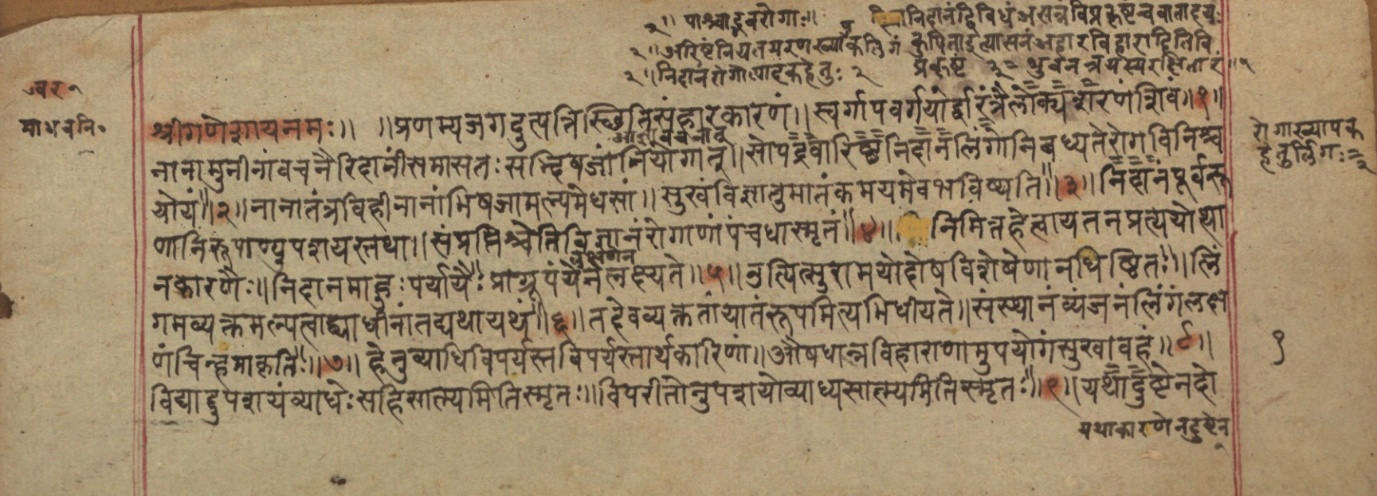 २॥ पाश्चाद्भवरोगाः॥
निदानं द्विविधं असन्नं विप्रकृष्टं च वातादयः
२॥ अरिष्टं नियतमरण लिंगं कुपिताई त्यासनं अहारविहारादि तिवि
२॥ निदानं रोगोत्पादकहेतुः २ प्रकृष्टं
ज्वर १
माधवनि॰
श्रीगणेशायनमः॥ ॥प्रणम्यजगदुत्पत्तिस्थितिसंहारकारणं॥स्वर्गापवर्गयोर्द्वारंत्रैलोक्यशरणंशिवं॥१॥
नानामुनीनांवचनैरिदानींसमासतःसद्भिषजांनियोगात्॥सोपद्रवारिष्टनिदानलिंगोनिबध्यतेरोगविनिश्च
योयं॥२॥नानातंत्रविहीनानांभिषजामल्पमेधसां॥सुखंविज्ञातुमातंकमयमेवभविष्यति॥३॥निदानंपूर्वरू
पाणिरूपाण्युपशयस्तथा॥संप्राप्तिश्चेतिविज्ञानंरोगाणांपंचधास्मृतं॥४॥निमित्तहेत्वायतनप्रत्ययोत्था
नकारणैः॥निदानमाहुःपर्यायैःप्राग्रूपंयेनलक्ष्यते॥५॥उत्पित्सुरामयोदोषविशेषेणानधिष्ठितः॥लिं
गमव्यक्तमल्पत्वाद्व्याधीनांतद्यथायथं॥६॥तदेवव्यक्ततांयातंरूपमित्यभिधीयते॥संस्थानंव्यंजनंलिंगंलक्ष
णंचिन्हमाकृतिः॥७॥हेतुव्याधिविपर्यस्तविपर्यस्तार्थकारिणां॥औषधान्नविहाराणामुपयोगंसुखावहं॥८॥
विद्यादुपशयंव्याधेःसहिसात्म्यमितिस्मृतः॥विपरीतोनुपशयोव्याध्यसात्म्यमितिस्मृतः॥९॥यथादुष्टेनदो
रोगाख्यापक
हेतुर्लिंगः २
१
यथाकारणेनदुष्टेन